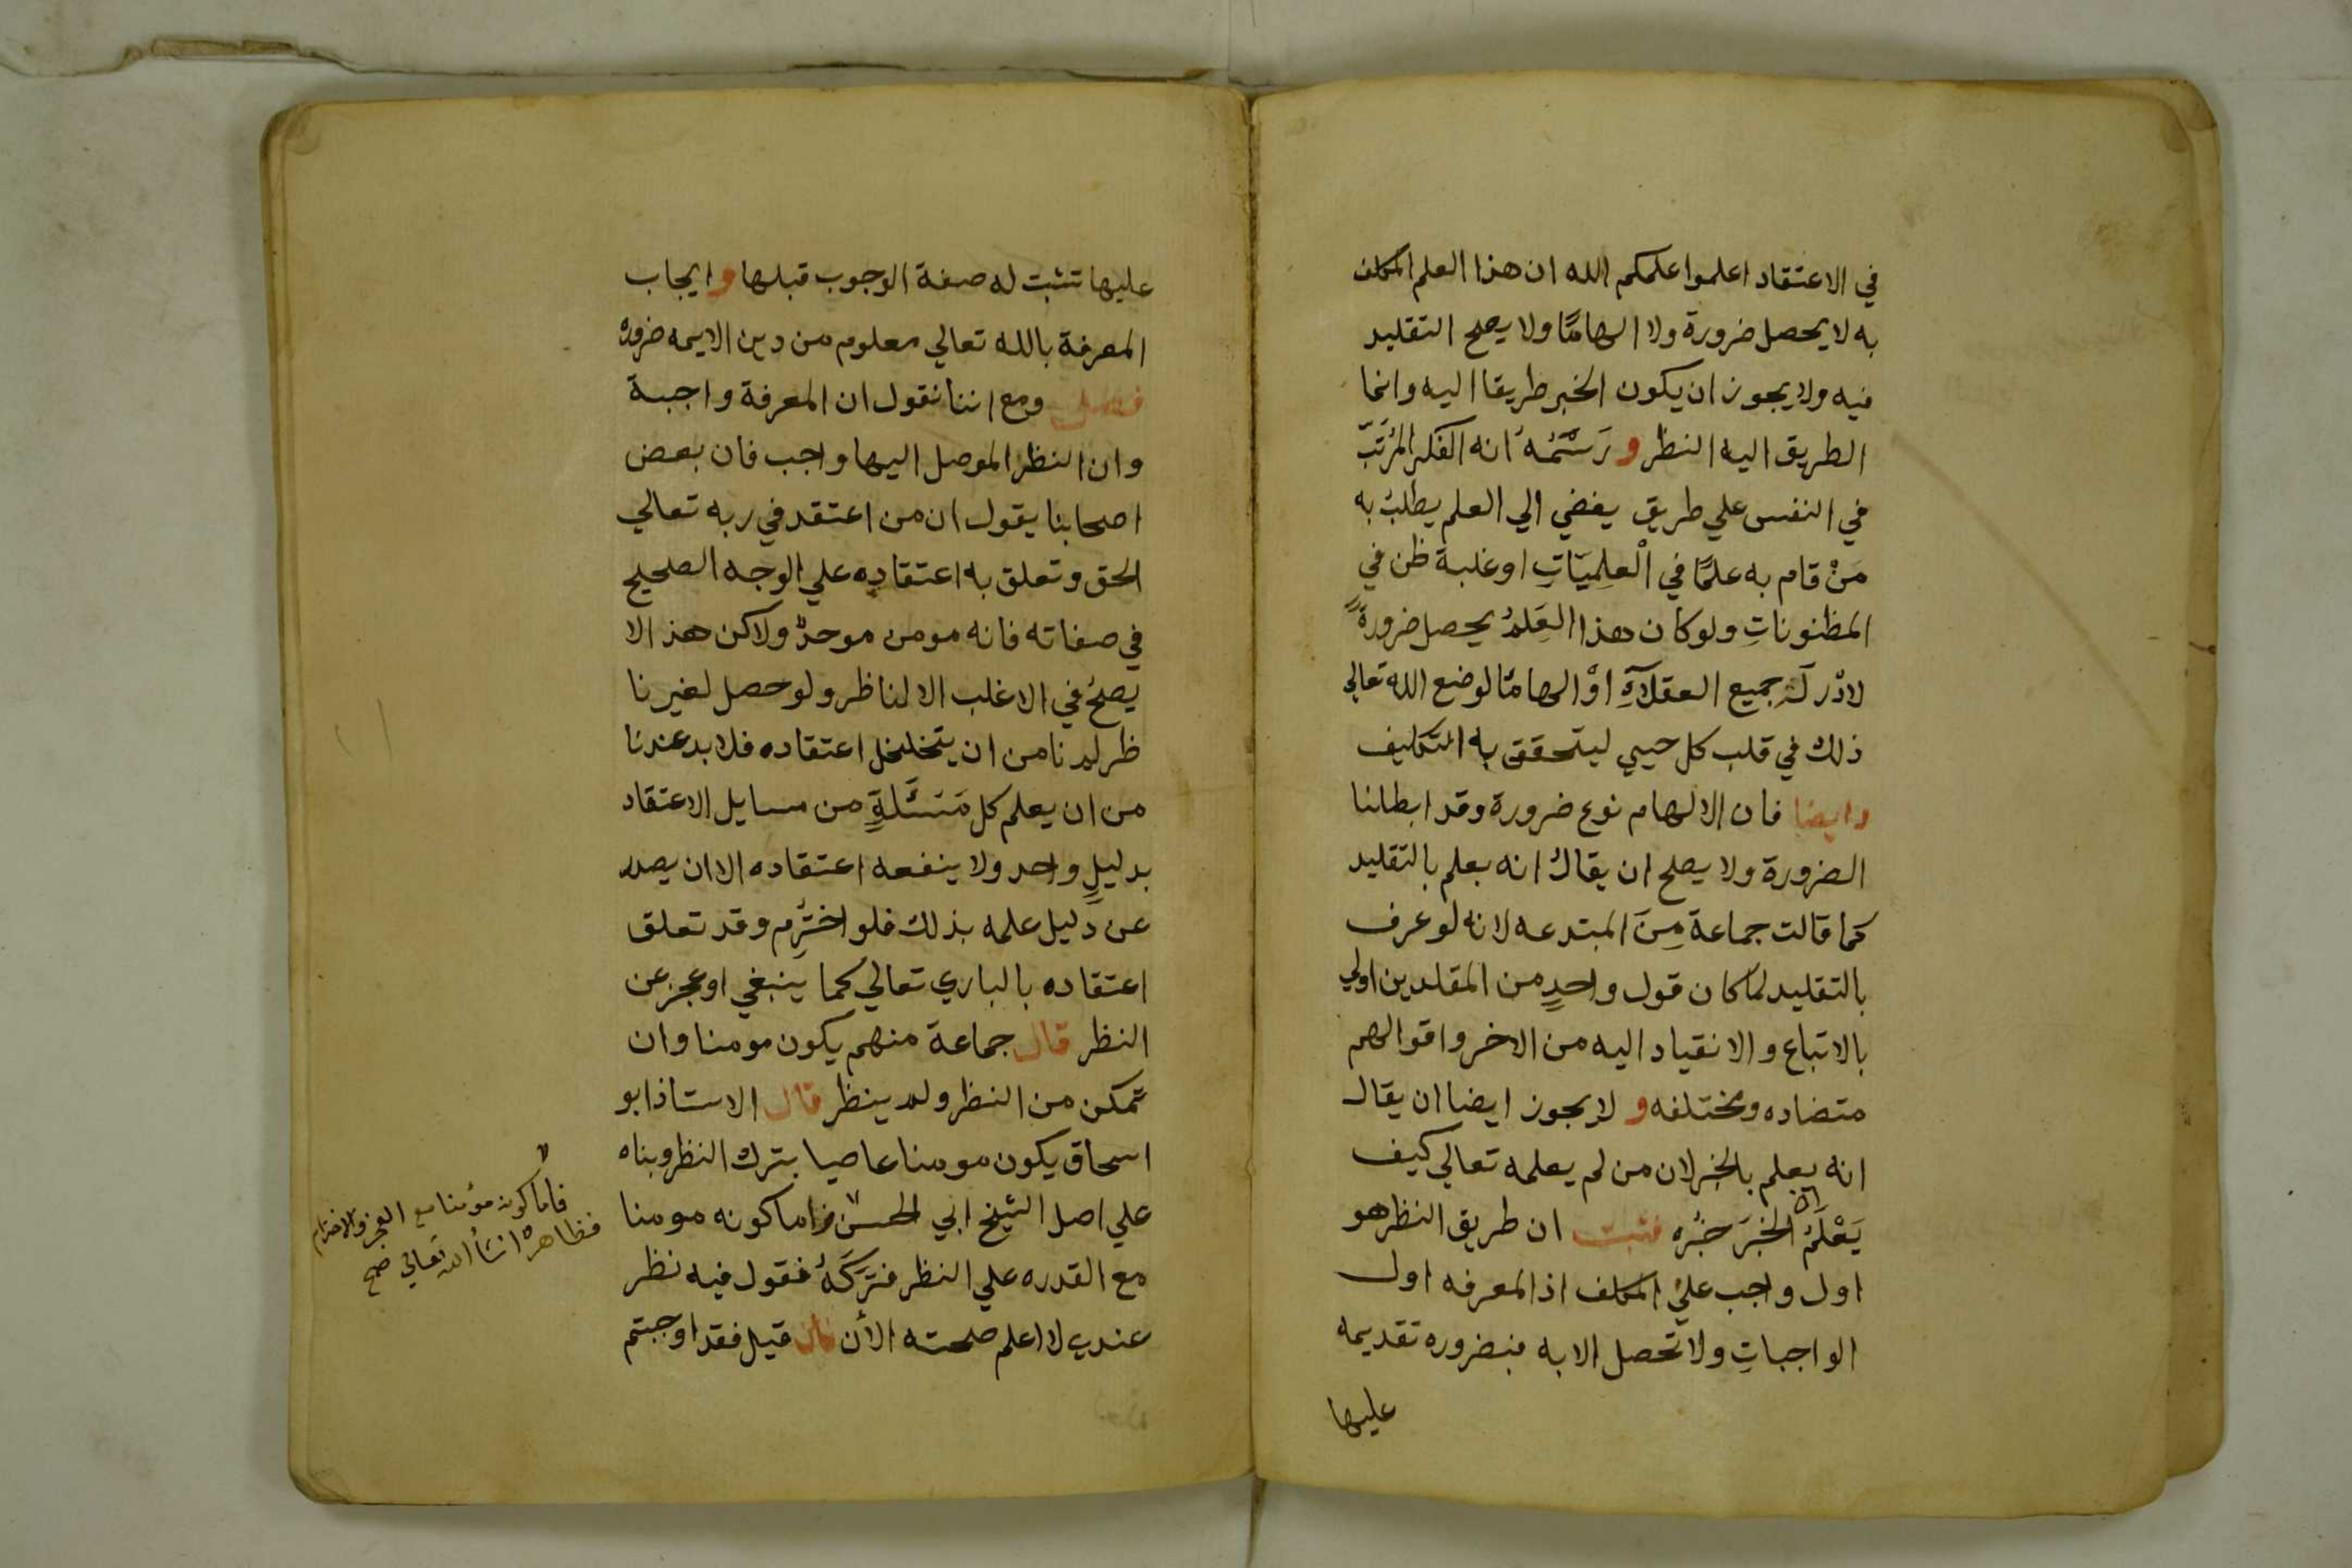 في الاعتقاد اعلموا علمكم الله ان هذا العلم المكلف
به لا يحصل ضرورة ولا الهامًا ولا يصح التقليد
فيه ولا يجوز ان يكون الخبر طريقا اليه وانما
الطريق اليه النظر و رَسْمُهُ انه الفكر المُرتَّبُ
في النفس علي طريق يفضي الي العلم يطلبُ به
مَنْ قام به علمًا في الْعِلمِيَّاتِ او غلبة ظن في
المظنوناتِ ولو كان هذا العِلمُ يحصل ضرورةً
لادْركَ جميع العقلآءِ اوْ الهامًا لوضع الله تعالي
ذلك في قلب كل حيي ليتحقق به التكليف
وايضا فان الالهام نوع ضرورة وقد ابطلنا
الضرورة ولا يصلح ان يقال انه يعلم بالتقليد
كما قالت جماعة مِنَ المبتدعه لانه لو عرف
بالتقليد لما كان قول واحدٍ من المقلدين اولي
بالاتباع والانقياد اليه من الاخر واقوالهم
متضاده ومختلفه و لا يجوز ايضا ان يقال
انه يعلم بالخبر لان من لم يعلمه تعالي كيف
يَعْلَمُ انّ الخبَرَ خبَرُه فثبت ان طريق النظر هو
اول واجب علي المكلف اذ المعرفه اول
الواجباتِ ولا تحصل الا به فبضروره تقديمه
عليها
عليها تثبت له صفة الوجوب قبلها و ايجاب
المعرفة بالله تعالي معلوم من دين الايمه ضروره
فصل ومع اننا نقول ان المعرفة واجبة
وان النظر الموصل اليها واجب فان بعض
اصحابنا يقول ان من اعتقد في ربه تعالي
الحق وتعلق به اعتقاده علي الوجه الصحيح
في صفاته فانه مومن موحدٌ ولاكن هذا لا
يصحُ في الاغلب الا لناظر ولو حصل لغير نا
ظر لم نامن ان يتخلخل اعتقاده فلا بد عندنا
من ان يعلم كل مَسْئَلةٍ من مسايل الاعتقاد
بدليلٍ واحد ولا ينفعه اعتقاده الا ان يصدر
عن دليل علمه بذلك فلو اختُرِم وقد تعلق
اعتقاده بالباري تعالي كما ينبغي او عجز عن
النظر قال جماعة منهم يكون مومنا وان
تمكن من النظر ولم ينظر قال الاستاذ ابو
اسحاق يكون مومنا عاصيا بترك النظر وبناه
علي اصل الشيخ ابي الحسن واما كونه مومنا
مع القدره علي النظر فتركَهُ فقول فيه نظر
عندي لا اعلم صحته الأن فان قيل فقد اوجبتم
فاما كونه مؤمنا مع العجز والاخترام
فظاهرٌ ان شأ الله تعالي صح